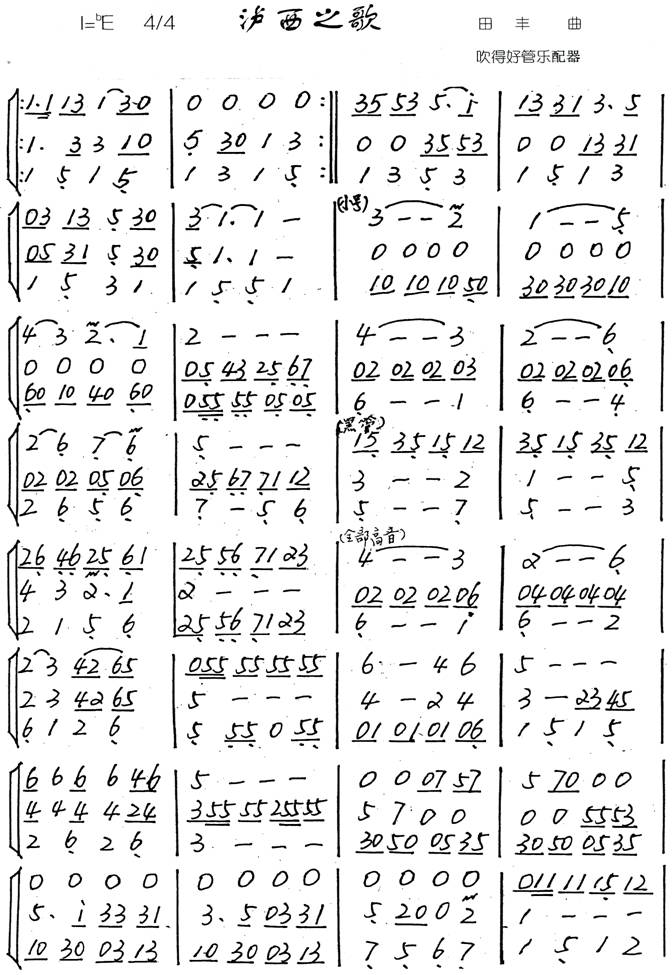 1=ᵇE 4/4 泸西之歌 田丰 曲
吹得好管乐配器
1.1 13 1 30 | 0 0 0 0 :‖ 35 53 5. i | 13 31 3. 5
1. 3 3 10 | 5 30 1 3 :‖ 0 0 35 53 | 0 0 13 31
1 5 1 5 | 1 3 1 5 :‖ 1 3 5 3 | 1 5 1 3
(小号)
03 13 5 30 | 3 1. 1 - | 3 - - 2 | 1 - - 5
05 31 5 30 | 5 1. 1 - | 0 0 0 0 | 0 0 0 0
1 5 3 1 | 1 5 5 1 | 10 10 10 50 | 30 30 30 10
4 3 2. 1 | 2 - - - | 4 - - 3 | 2 - - 6
0 0 0 0 | 05 43 25 67 | 02 02 02 03 | 02 02 02 06
60 10 40 60 | 055 55 05 05 | 6 - - 1 | 6 - - 4
(黑管)
2 6 7 6 | 5 - - - | 15 35 15 12 | 35 15 35 12
02 02 05 06 | 25 67 71 12 | 3 - - 2 | 1 - - 5
2 6 5 6 | 7 - 5 6 | 5 - - 7 | 5 - - 3
(全部高音)
26 46 25 61 | 25 56 71 23 | 4 - - 3 | 2 - - 6
4 3 2. 1 | 2 - - - | 02 02 02 06 | 04 04 04 04
2 1 5 6 | 25 56 71 23 | 6 - - i | 6 - - 2
2 3 42 65 | 055 55 55 55 | 6 - 4 6 | 5 - - -
2 3 42 65 | 5 - - - | 4 - 2 4 | 3 - 23 45
6 1 2 6 | 5 55 0 55 | 01 01 01 06 | 1 5 1 5
6 6 6 6 46 | 5 - - - | 0 0 07 57 | 5 70 0 0
4 4 4 4 24 | 355 55 255 55 | 5 7 0 0 | 0 0 55 53
2 6 2 6 | 3 - - - | 30 50 05 35 | 30 50 05 35
0 0 0 0 | 0 0 0 0 | 0 0 0 0 | 011 11 15 12
5. i 33 31 | 3. 5 03 31 | 5 20 0 2 | 1 - - -
10 30 03 13 | 10 30 03 13 | 7 5 6 7 | 1 5 1 2